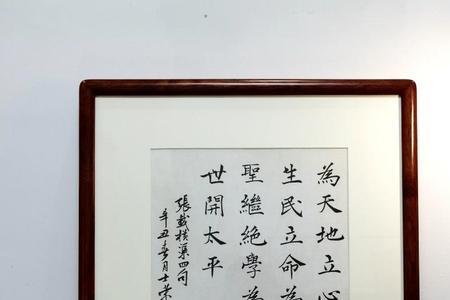 為天地立心
生民立命為
聖繼絕學為
世開太平
張載橫渠四句
辛丑春月士榮